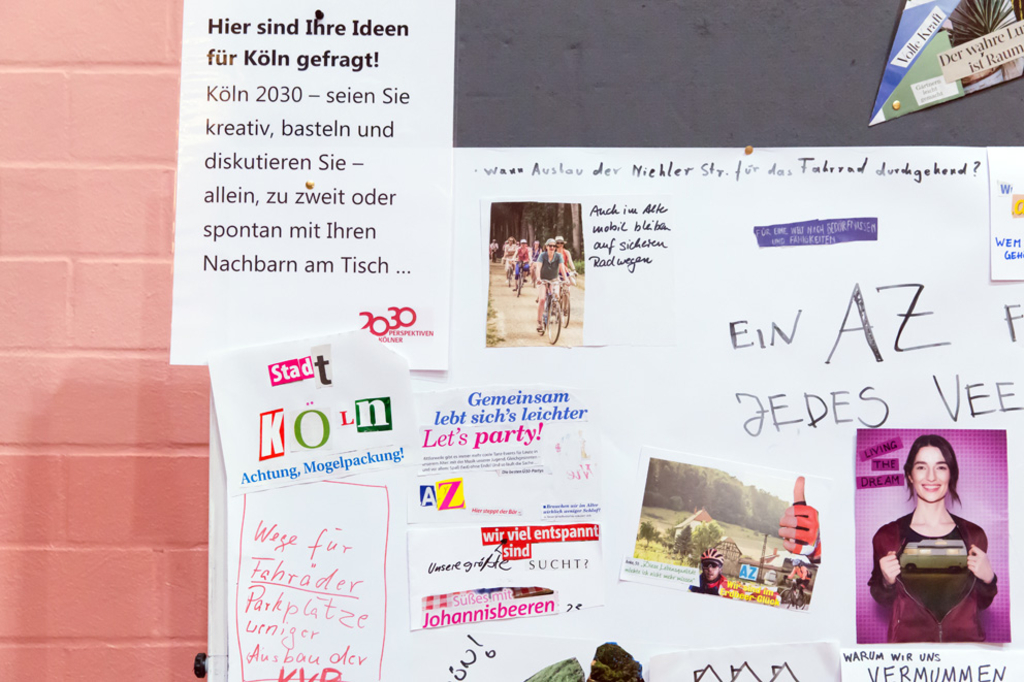 Hier sind Ihre Ideen
für Köln gefragt!
Köln 2030 – seien Sie
kreativ, basteln und
diskutieren Sie –
allein, zu zweit oder
spontan mit Ihren
Nachbarn am Tisch ...
2030
PERSPEKTIVEN
KÖLNER
Volle Kraft
Der wahre Lu
ist Raum
· wann Ausbau der Niehler Str. für das Fahrrad durchgehend?
Auch im Alter
mobil bleiben
auf sicheren
Radwegen
FÜR EINE WELT NACH BEDÜRFNISSEN
UND FÄHIGKEITEN
WEM
GEHÖ
EIN AZ F
JEDES VEE
Stadt
KÖLn
Achtung, Mogelpackung!
Gemeinsam
lebt sich's leichter
Let's party!
AZ
Hier steppt der Bär
wir viel entspannt
sind
Unsere größte SUCHT?
Süßes mit
Johannisbeeren
Wege für
Fahrräder
Parkplätze
weniger
Ausbau der
KVB
AZ
Wir sind im
Größeres Glück
LIVING
THE
DREAM
WARUM WIR UNS
VERMUMMEN